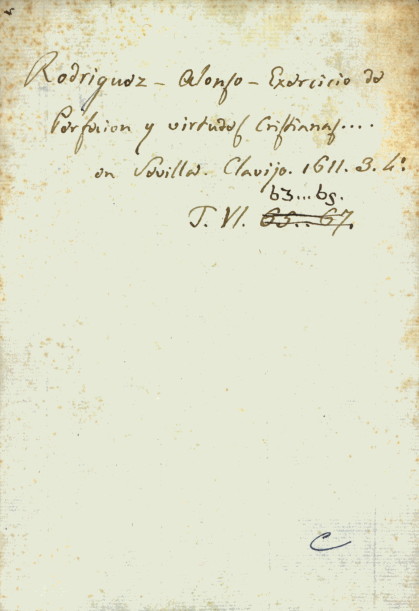 Rodriguez - Alonso - Exercicio de
Perfecion y virtudes Cristianas....
en Sevilla. Clavijo. 1611. 3. 4º
63...65.
T. VI. 65... 67.
C